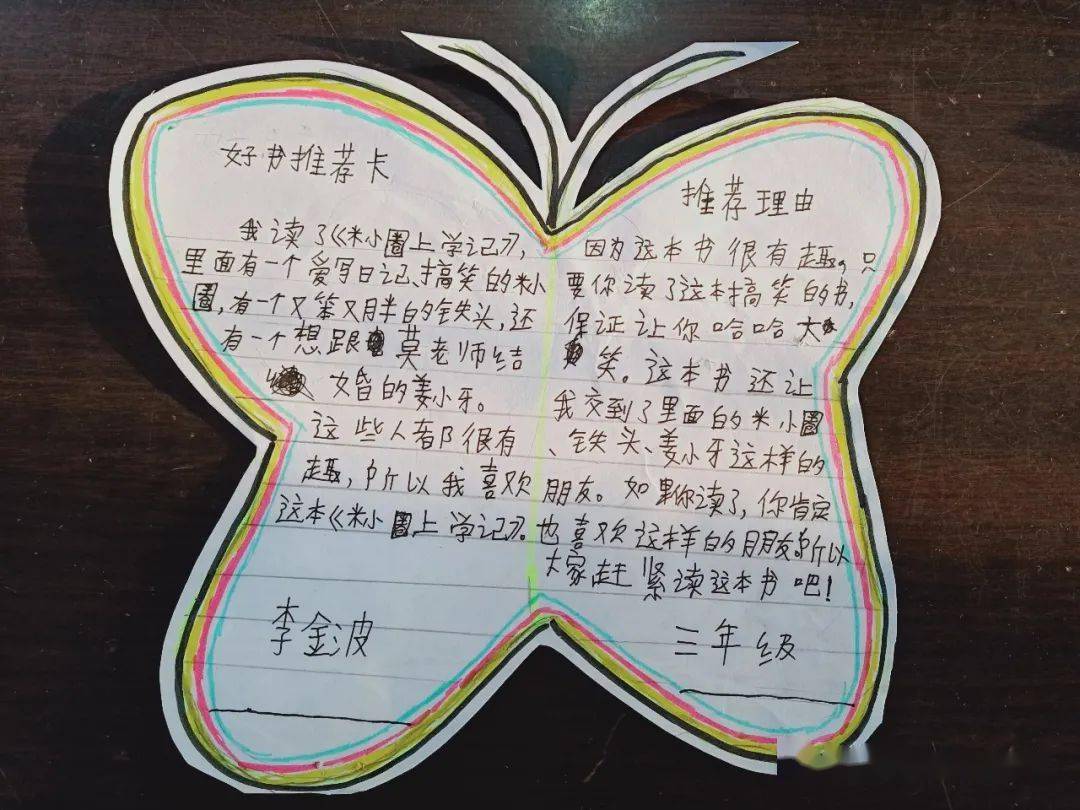 好书推荐卡
我读了《米小圈上学记》，
里面有一个爱写日记、搞笑的米小
圈，有一个又笨又胖的铁头，还
有一个想跟莫老师结
婚的姜小牙。
这些人都很有
趣，所以我喜欢
这本《米小圈上学记》。
李金波
推荐理由
因为这本书很有趣。只
要你读了这本搞笑的书，
保证让你哈哈大
笑。这本书还让
我交到了里面的米小圈
、铁头、姜小牙这样的
朋友。如果你读了，你肯定
也喜欢这样的朋友。所以
大家赶紧读这本书吧！
三年级